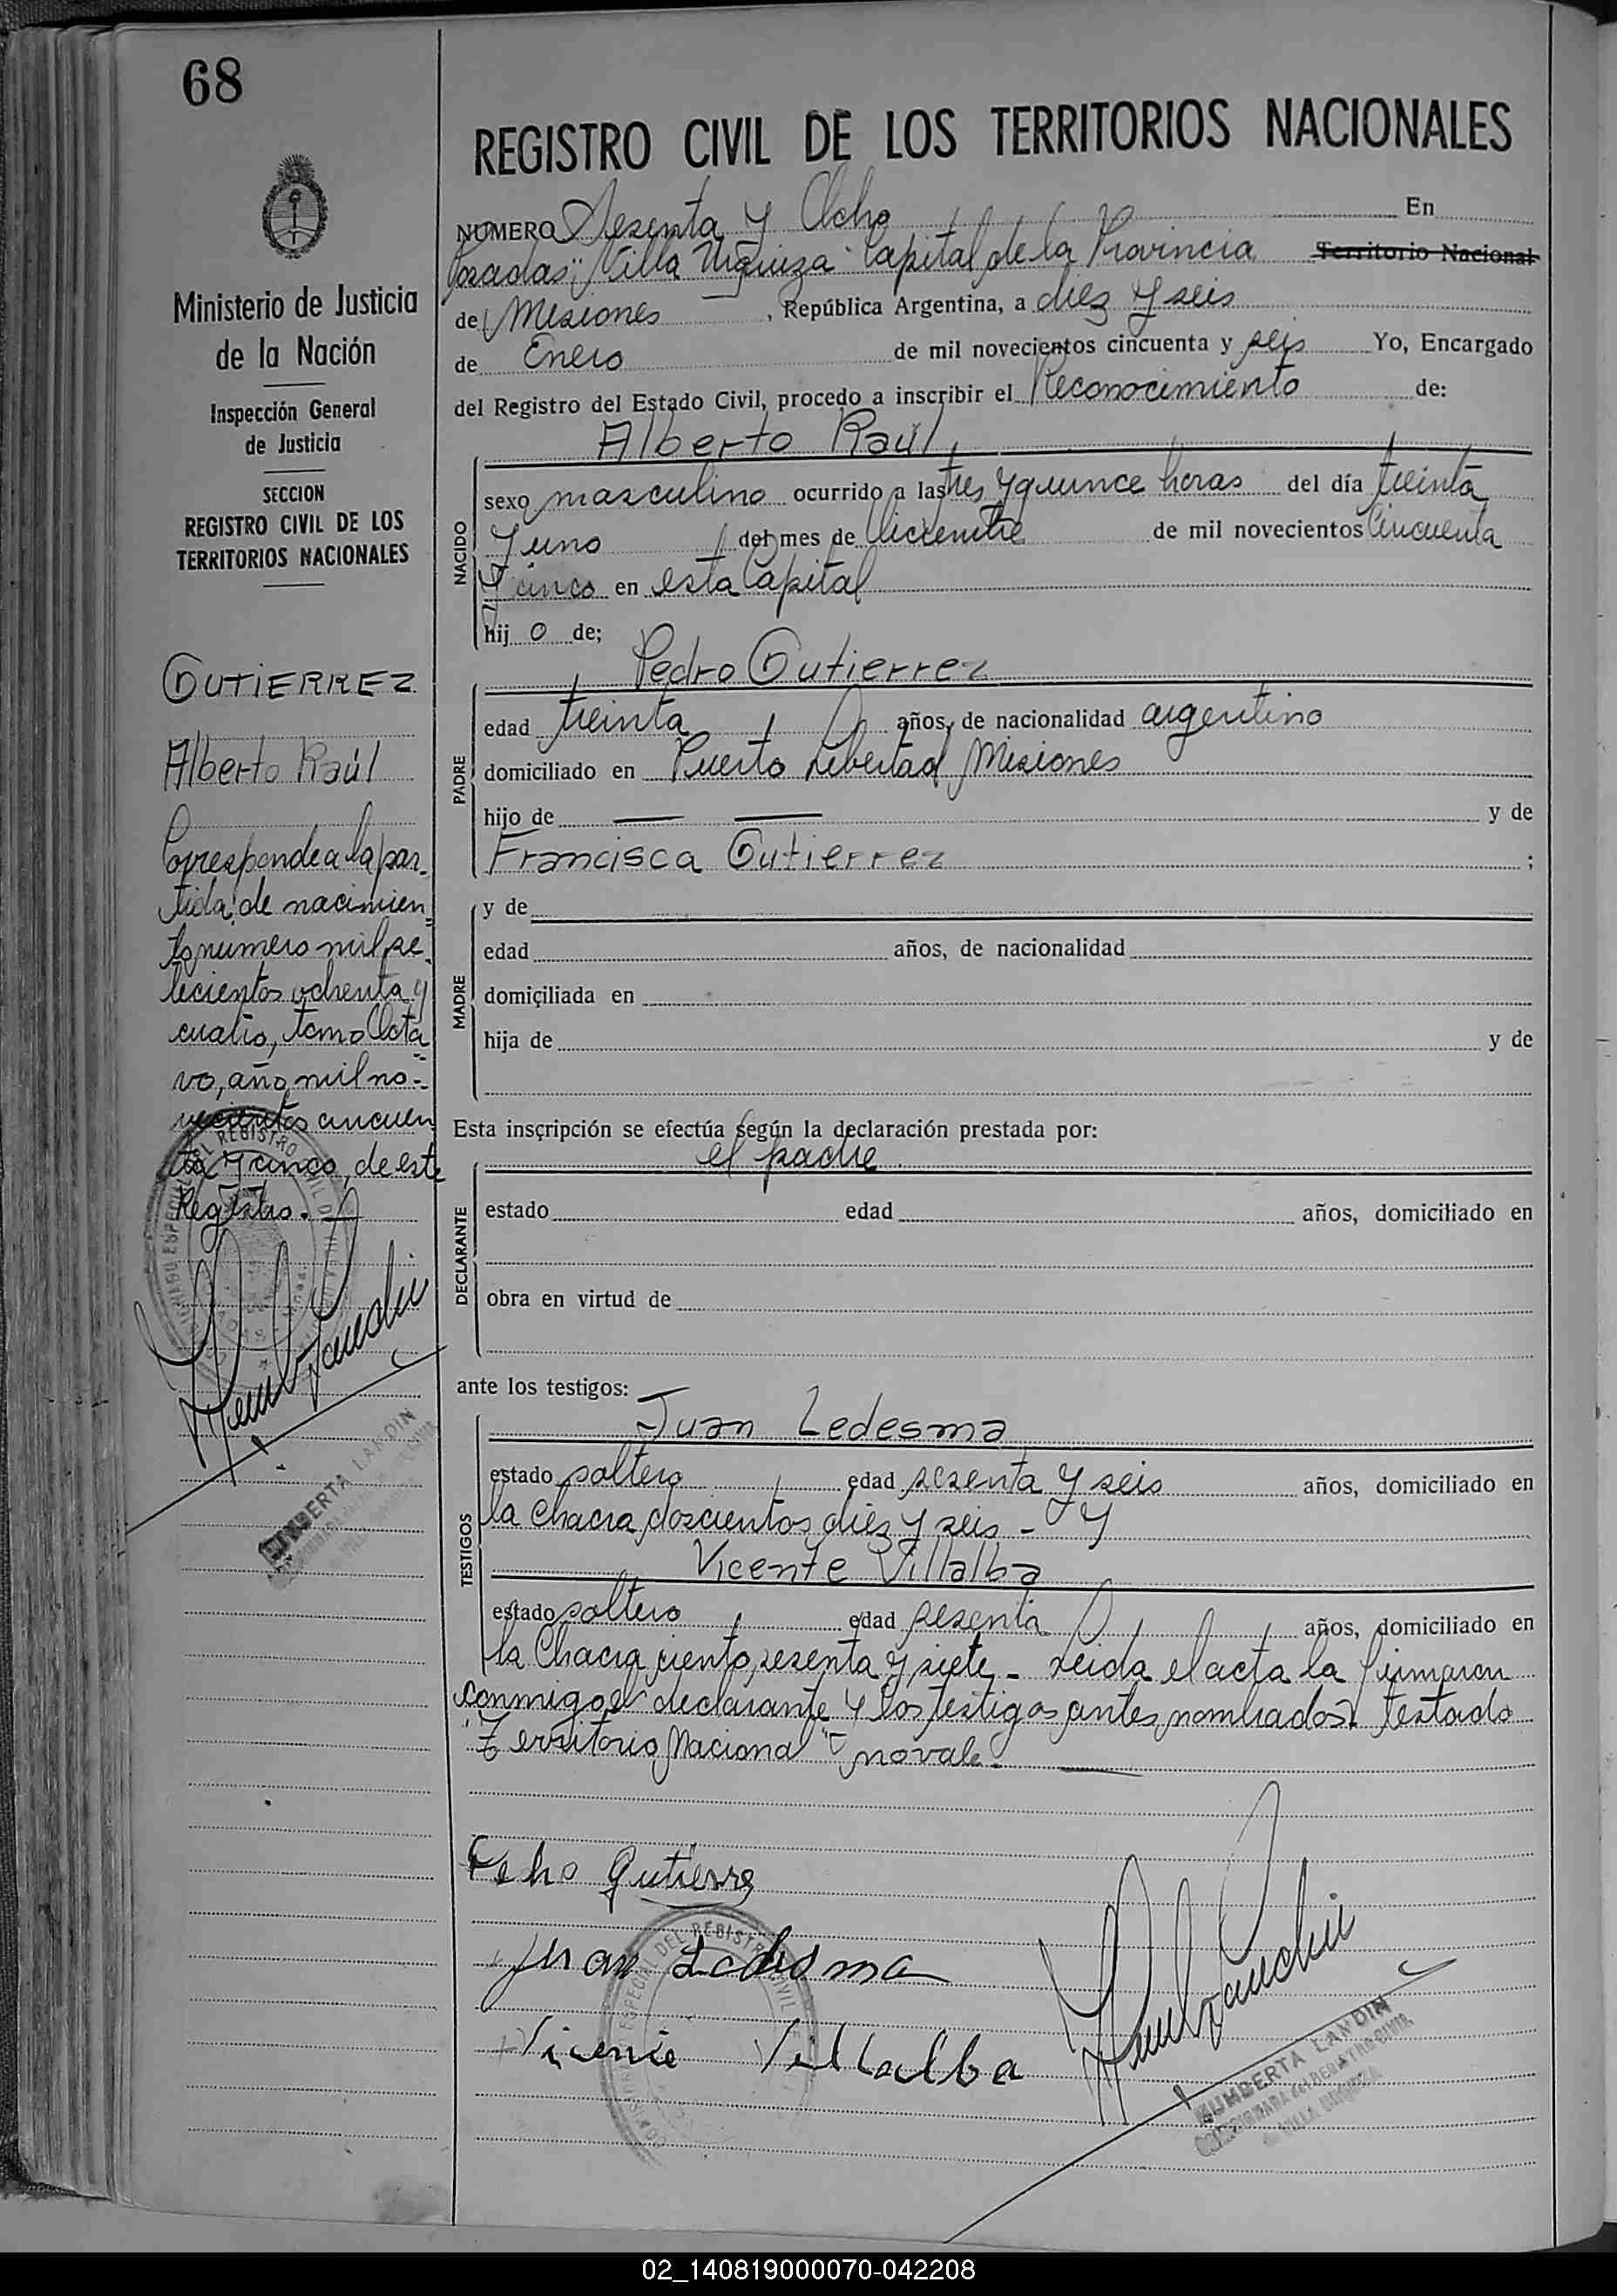 68
Ministerio de Justicia
de la Nación
Inspección General
de Justicia
SECCION
REGISTRO CIVIL DE LOS
TERRITORIOS NACIONALES
GUTIERREZ
Alberto Raúl
Corresponde a la par-
tida de nacimien-
to numero mil se-
tecientos ochenta y
cuatro, tomo Octa-
vo, año mil no-
vecientos cincuen
ta y cinco, de este
Registro.
HUMBERTA LANDIN
REGISTRO CIVIL DE LOS TERRITORIOS NACIONALES
NUMERO Sesenta y Ocho En
Posadas "Villa Urquiza" Capital de la Provincia Territorio Nacional
de Misiones, República Argentina, a diez y seis
de Enero de mil novecientos cincuenta y seis Yo, Encargado
del Registro del Estado Civil, procedo a inscribir el Reconocimiento de:
Alberto Raúl
NACIDO
sexo masculino ocurrido a las tres y quince horas del día treinta
y uno del mes de diciembre de mil novecientos cincuenta
y cinco en esta Capital
hijo de;
Pedro Gutierrez
PADRE
edad treinta años, de nacionalidad argentino
domiciliado en Puerto Libertad Misiones
hijo de — — y de
Francisca Gutierrez ;
MADRE
y de
edad años, de nacionalidad
domiciliada en
hija de y de
Esta inscripción se efectúa según la declaración prestada por:
el padre
DECLARANTE
estado edad años, domiciliado en
obra en virtud de
ante los testigos:
Juan Ledesma
TESTIGOS
estado soltero edad sesenta y seis años, domiciliado en
la chacra doscientos diez y seis - y
Vicente Villalba
estado soltero edad sesenta años, domiciliado en
la Chacra ciento sesenta y siete - Leida el acta la firmaron
conmigo el declarante y los testigos antes nombrados. Testado
"Territorio Nacional" - no vale.
Juan Ledesma
Vicente Villalba
HUMBERTA LANDIN
ENCARGADA del REGISTRO CIVIL
VILLA URQUIZA
02_140819000070-042208